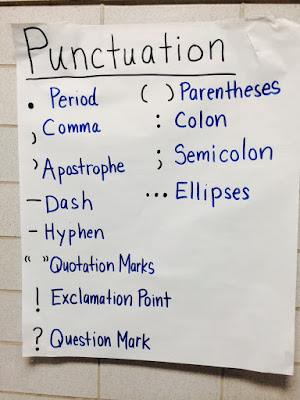 Punctuation
. Period
, Comma
’ Apostrophe
— Dash
- Hyphen
“ ” Quotation Marks
! Exclamation Point
? Question Mark
( ) Parentheses
: Colon
; Semicolon
... Ellipses